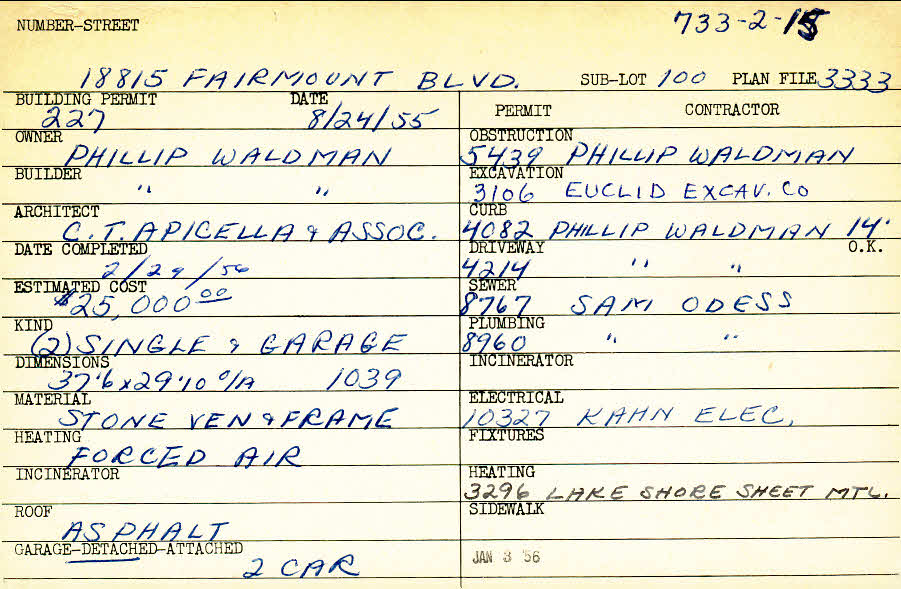 NUMBER-STREET
733-2-15
18815 FAIRMOUNT BLVD. SUB-LOT 100 PLAN FILE 3333
BUILDING PERMIT DATE
227 8/24/55
OWNER
PHILLIP WALDMAN
BUILDER
" "
ARCHITECT
C.T. APICELLA & ASSOC.
DATE COMPLETED
2/29/56
ESTIMATED COST
$25,000.00
KIND
(2) SINGLE & GARAGE
DIMENSIONS
37'6 x 29'10 O/A 1039
MATERIAL
STONE VEN & FRAME
HEATING
FORCED AIR
INCINERATOR
ROOF
ASPHALT
GARAGE-DETACHED-ATTACHED
2 CAR
PERMIT CONTRACTOR
OBSTRUCTION
5439 PHILLIP WALDMAN
EXCAVATION
3106 EUCLID EXCAV. CO
CURB
4082 PHLLIP WALDMAN 14'
DRIVEWAY O.K.
4214 " "
SEWER
8767 SAM ODESS
PLUMBING
8960 " "
INCINERATOR
ELECTRICAL
10327 KAHN ELEC.
FIXTURES
HEATING
3296 LAKE SHORE SHEET MTL.
SIDEWALK
JAN 3 '56